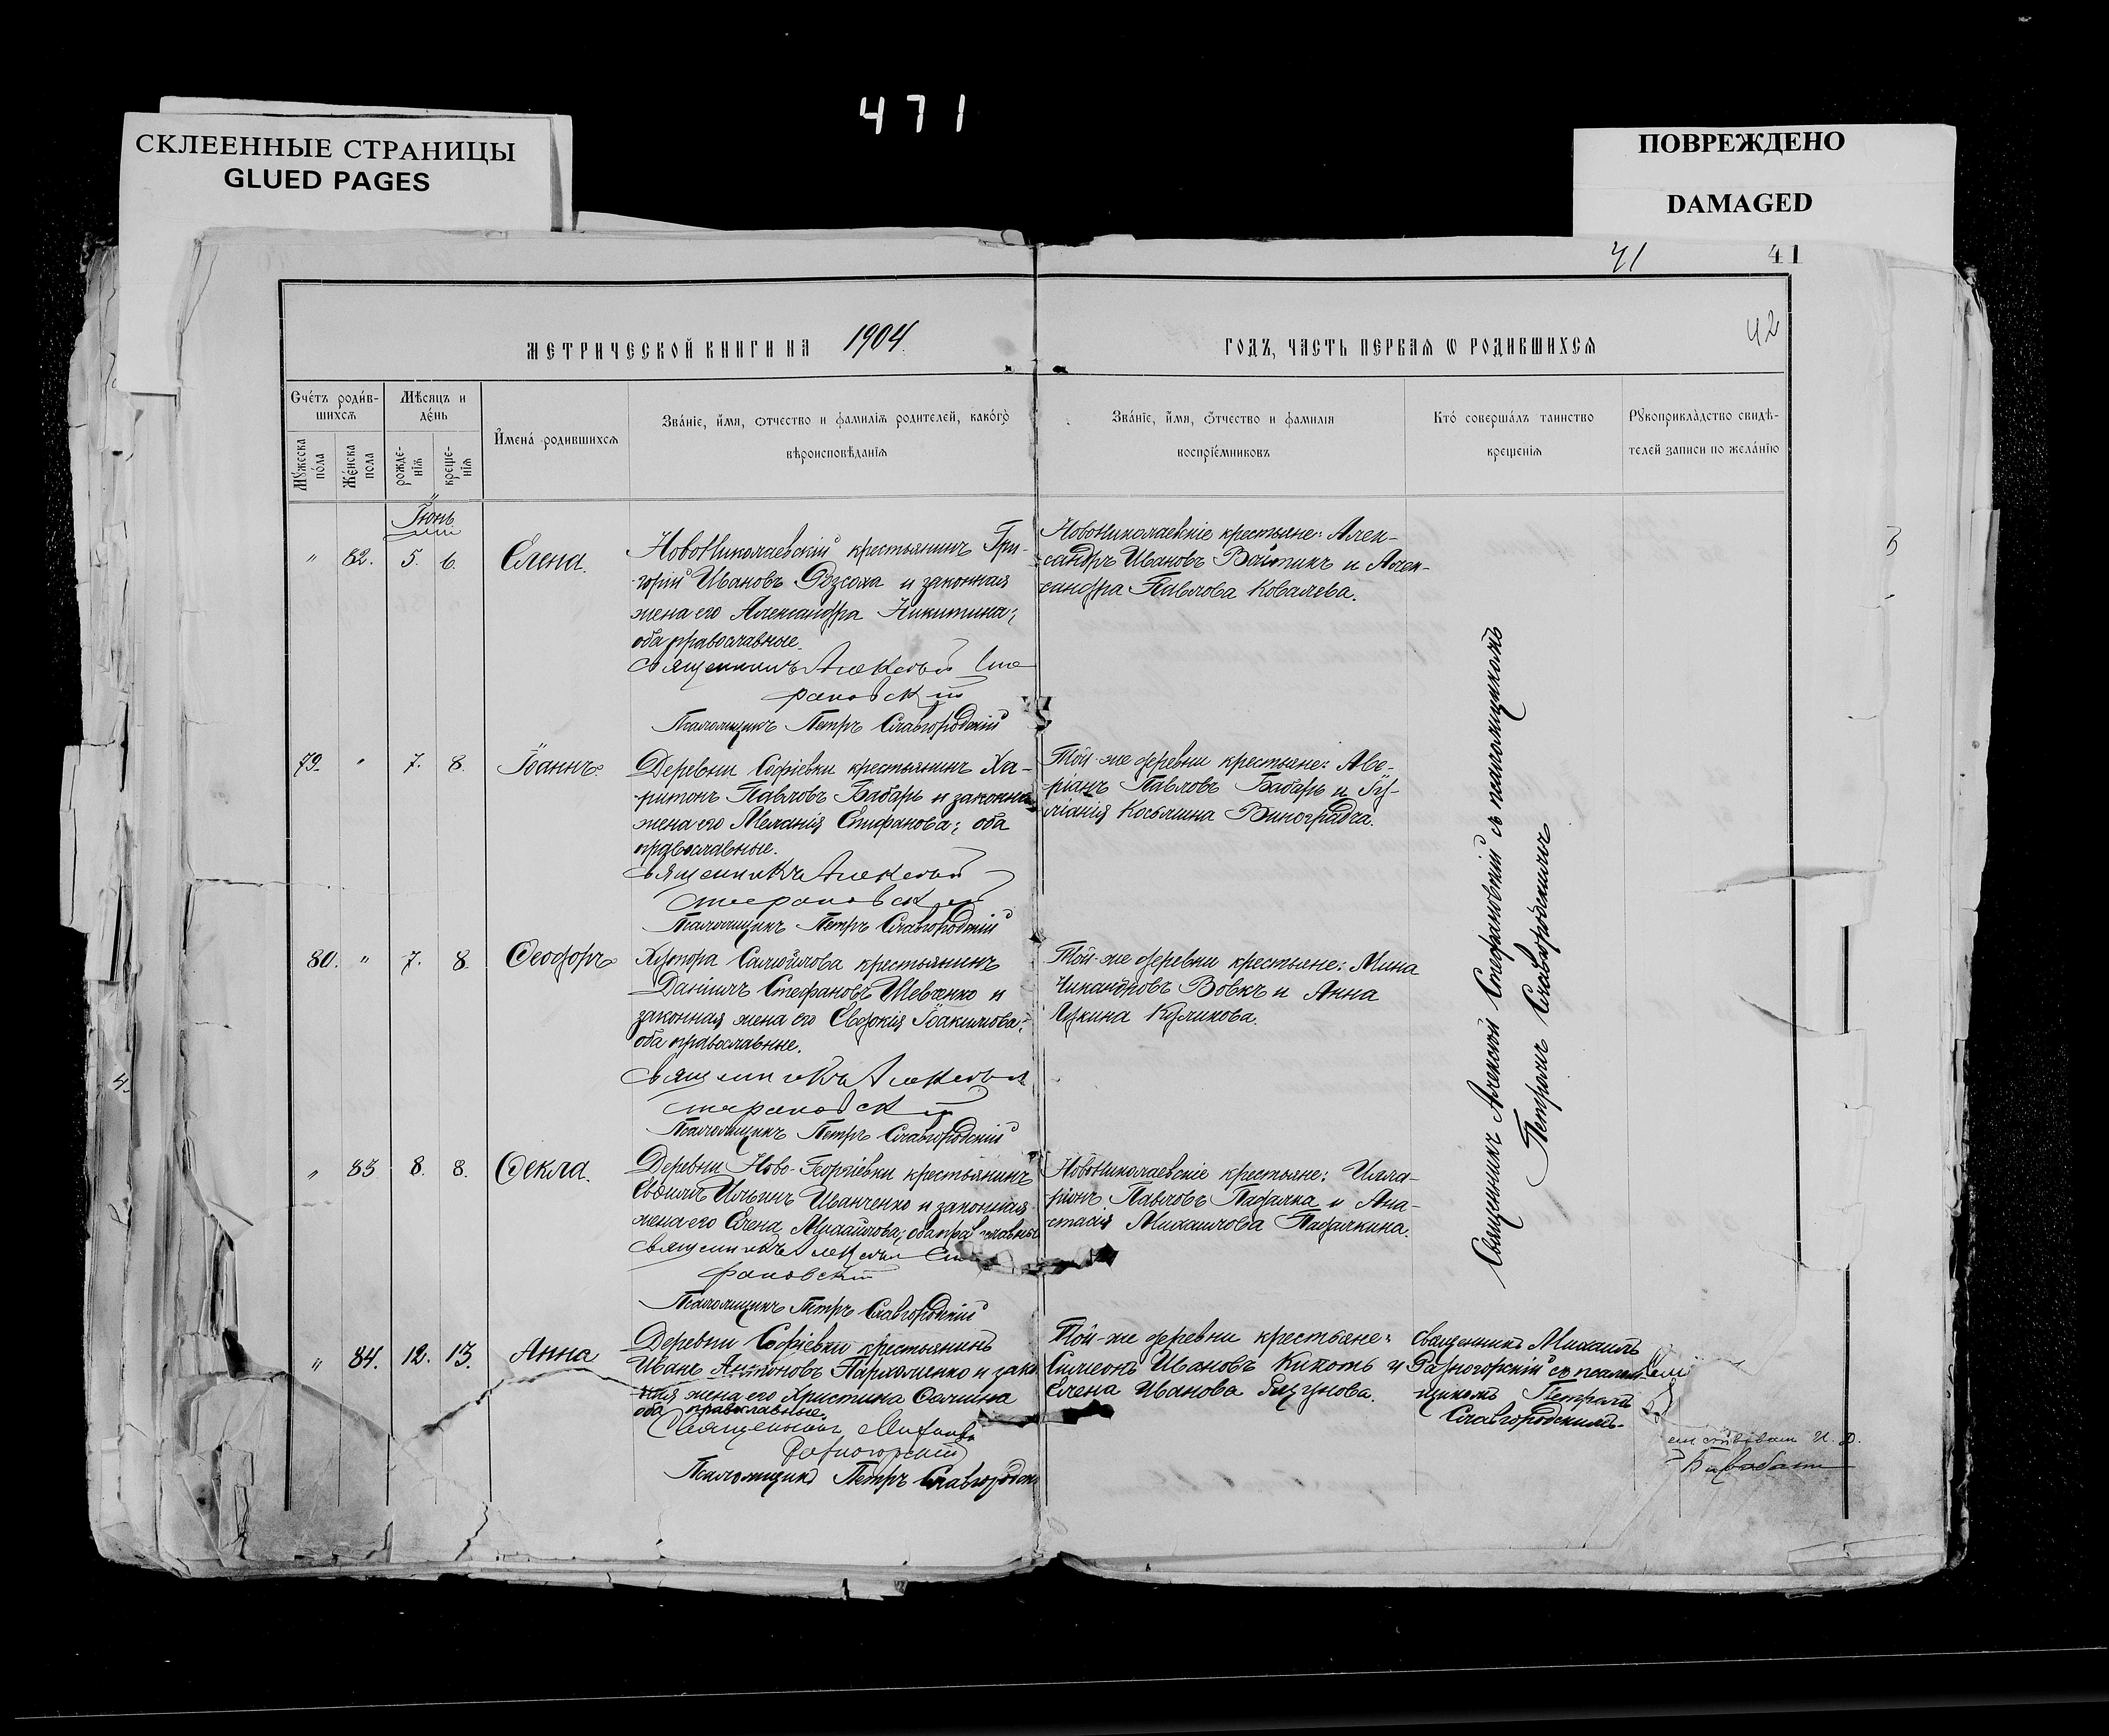 471
СКЛЕЕННЫЕ СТРАНИЦЫ
GLUED PAGES
ПОВРЕЖДЕНО
DAMAGED
41
41
42
МЕТРИЧЕСКОЙ КНИГИ НА 1904
ГОДЪ, ЧАСТЬ ПЕРВАЯ Ѡ РОДИВШИХСЯ
Счетъ родив-
шихся
Мѣсяцъ и
день
Мужеска
пола
Женска
пола
рожде-
нія
креще-
нія
Имена родившихся
Званіе, имя, отчество и фамилія родителей, какого
вѣроисповѣданія
Званіе, имя, отчество и фамилія
воспріемниковъ
Кто совершалъ таинство
крещенія
Рукоприкладство свидѣ-
телей записи по желанію
Іюнь
" 82. 5. 6. Елена.
Новониколаевскій крестьянинъ Гри-
горій Ивановъ и законная
жена его Александра Никитина;
оба православные.
Священникъ Алексѣй Сте
фановскій
Псаломщикъ Петръ Славгородскій
Новониколаевскіе крестьяне: Алек-
сандръ Ивановъ Войтикъ и Алек-
сандра Павлова Ковалева.
79. " 7. 8. Іоаннъ.
Деревни Софіевки крестьянинъ Ха-
ритонъ Павловъ Бабарь и законна
жена его Меланія Стефанова; оба
православные.
Священникъ Алексѣй
Стефановскій
Псаломщикъ Петръ Славгородскій
Той-же деревни крестьяне: Аве-
ріанъ Павловъ Бабарь и Іу-
ліанія Косьмина Виноградча.
80. " 7. 8. Ѳеодоръ
Хутора Самойлова крестьянинъ
Даніилъ Стефановъ Шевченко и
законная жена его Евдокія Іоакимова;
оба православные.
Священникъ Алексѣй
Стефановскій
Псаломщикъ Петръ Славгородскій
Той-же деревни крестьяне: Мина
Никаноровъ Вовкъ и Анна
Лукина Куликова.
" 83 8. 8. Ѳекла.
Деревни Ново-Георгіевки крестьянинъ
Ильинъ Иванченко и законная
жена его Елена Михайлова; оба православные
Священникъ Алексѣй Сте
фановскій
Псаломщикъ Петръ Славгородскій
Новониколаевскіе крестьяне: Илла-
ріонъ Павловъ Падалка и Ана-
стасія Михаилова Падалкина.
" 84. 12. 13. Анна
Деревни Софіевки крестьянинъ
Иванъ Антоновъ Пархоменко и зако
ная жена его Христина
оба православные.
Священникъ Михаилъ
Разногорскій
Псаломщикъ Петръ Славгородск
Той-же деревни крестьяне:
Симеонъ Ивановъ Кикоть и
Елена Иванова
Священникъ Михаилъ
Разногорскій съ псалом-
щикомъ Петромъ
Славгородскимъ.
Священникъ Алексѣй Стефановскій съ псаломщикомъ
Петромъ Славгородскимъ